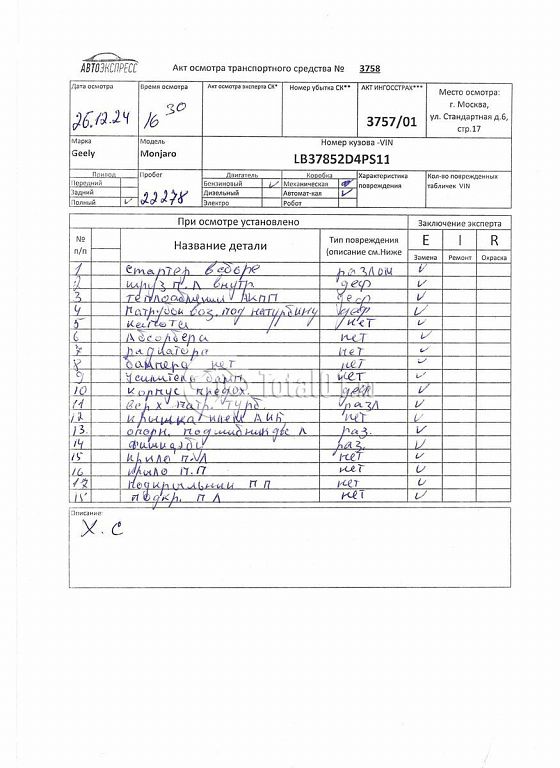 АВТОЭКСПРЕСС
Акт осмотра транспортного средства № 3758
Дата осмотра Время осмотра Акт осмотра эксперта СК* Номер убытка СК** АКТ ИНГОССТРАХ*** Место осмотра:
26.12.24 16 30 3757/01 г. Москва,
ул. Стандартная д.6,
стр.17
Марка Модель Номер кузова -VIN
Geely Monjaro LB37852D4PS11
Привод Пробег Двигатель Коробка Характеристика повреждения Кол-во поврежденных табличек VIN
Передний 22278 Бензиновый ✓ Механическая
Задний Дизельный Автомат-кая ✓
Полный ✓ Электро Робот
При осмотре установлено Заключение эксперта
№ п/п Название детали Тип повреждения (описание см.Ниже E I R
Замена Ремонт Окраска
1 стартер в сборе разлом ✓
2 шруз П.Л внутр деф ✓
3 теплообменник АКПП деф ✓
4 Патрубок воз. под натурбину деф ✓
5 капота нет ✓
6 Абсорбера нет ✓
7 радиатора нет ✓
8 бампера нет нет ✓
9 Усилитель бамп нет ✓
10 корпус предох. деф ✓
11 верх патр. турб. разл ✓
12 крышка клем АКБ нет ✓
13. опорн. под л раз. ✓
14 раз. ✓
15 крыло П.Л нет ✓
16 крыло П.П нет ✓
17 подкрыльник П П нет ✓
15 подкр. П Л нет ✓
Описание:
Х. С
TotalU